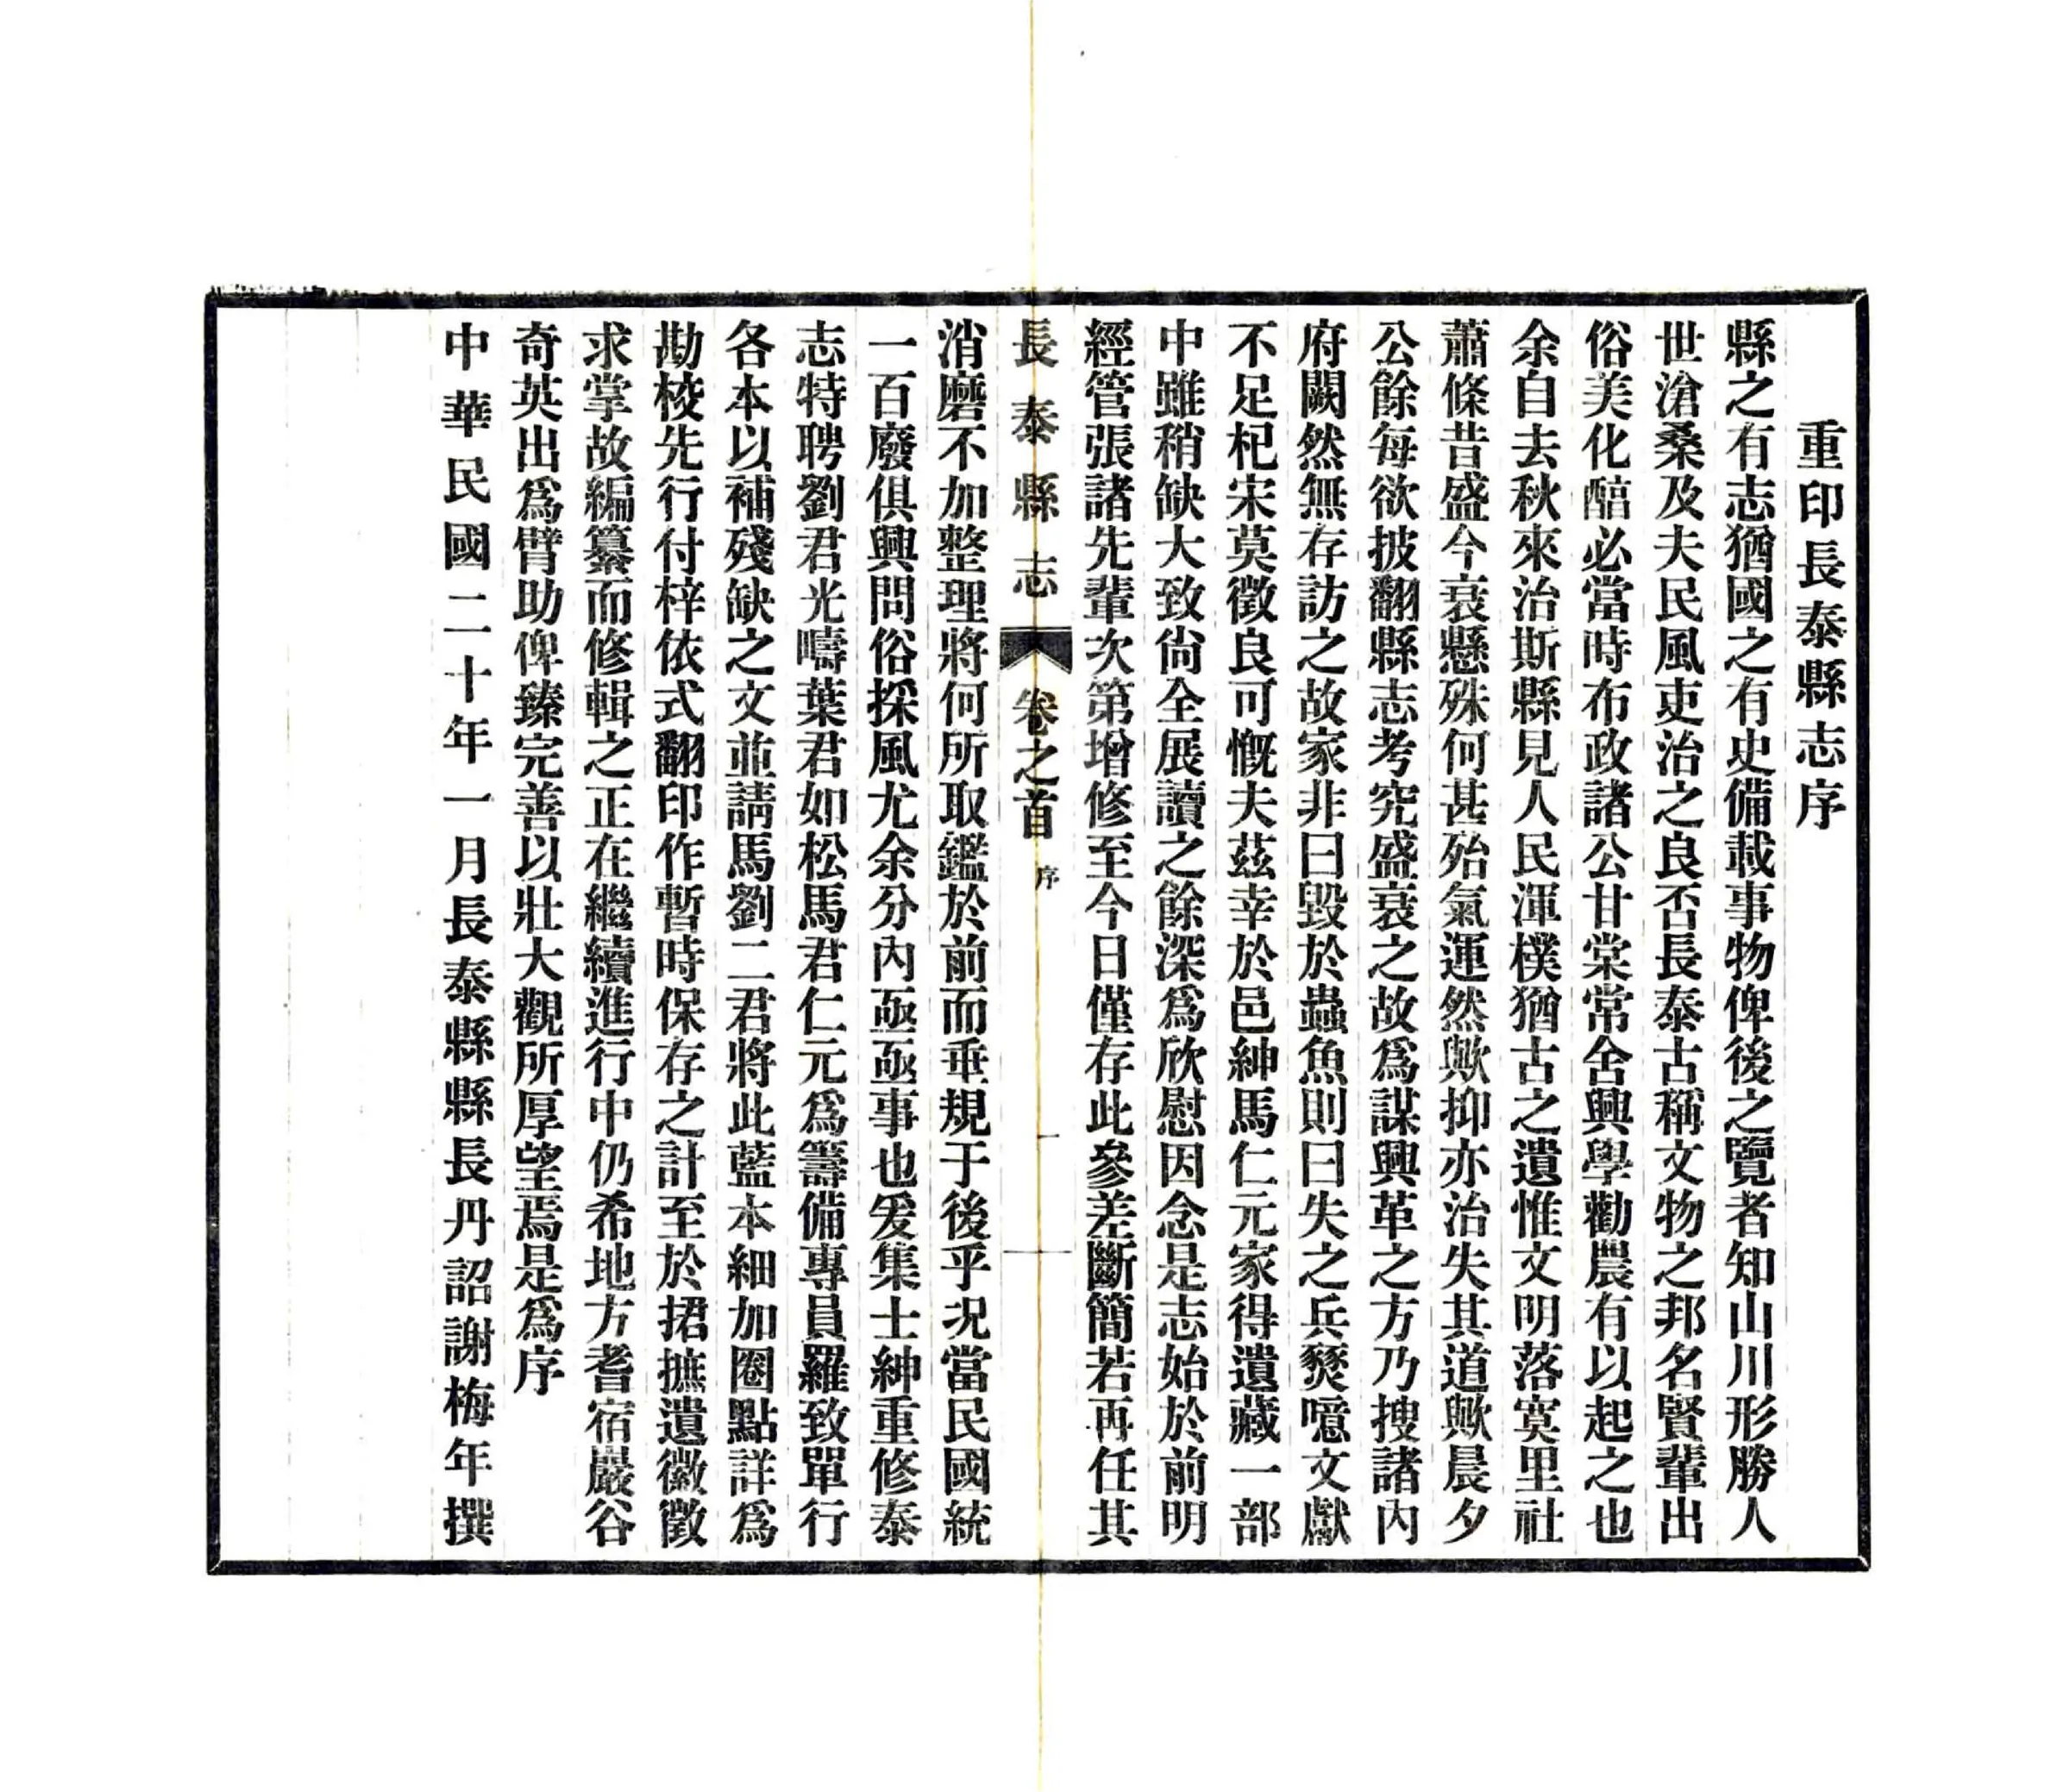 重印長泰縣志序
縣之有志猶國之有史備載事物俾後之覽者知山川形勝人
世滄桑及夫民風吏治之良否長泰古稱文物之邦名賢輩出
俗美化醕必當時布政諸公甘棠常舍興學勸農有以起之也
余自去秋來治斯縣見人民渾樸猶古之遺惟文明落寞里社
蕭條昔盛今衰懸殊何甚殆氣運然歟抑亦治失其道歟晨夕
公餘每欲披翻縣志考究盛衰之故爲謀興革之方乃搜諸內
府闕然無存訪之故家非曰毀於蟲魚則曰失之兵燹噫文獻
不足杞宋莫徵良可慨夫茲幸於邑紳馬仁元家得遺藏一部
中雖稍缺大致尙全展讀之餘深爲欣慰因念是志始於前明
經管張諸先輩次第增修至今日僅存此參差斷簡若再任其
長泰縣志 卷之首 序 一
消磨不加整理將何所取鑑於前而垂規于後乎况當民國統
一百廢俱興問俗採風尤余分內亟亟事也爰集士紳重修泰
志特聘劉君光嚋葉君如松馬君仁元爲籌備專員羅致單行
各本以補殘缺之文並請馬劉二君將此藍本細加圈點詳爲
勘校先行付梓依式翻印作暫時保存之計至於捃摭遺徽徵
求掌故編纂而修輯之正在繼續進行中仍希地方耆宿巖谷
奇英出爲臂助俾臻完善以壯大觀所厚望焉是爲序
中華民國二十年一月長泰縣縣長丹詔謝梅年撰